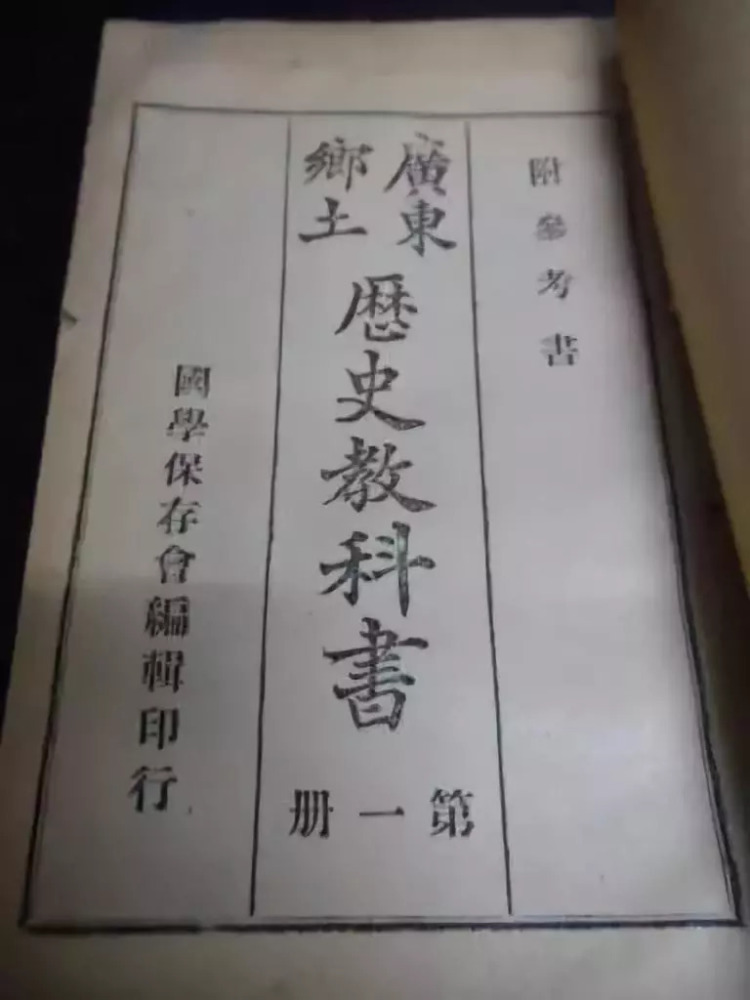 附參考書
廣東
鄉土
歷史教科書
第一册
國學保存會編輯印行